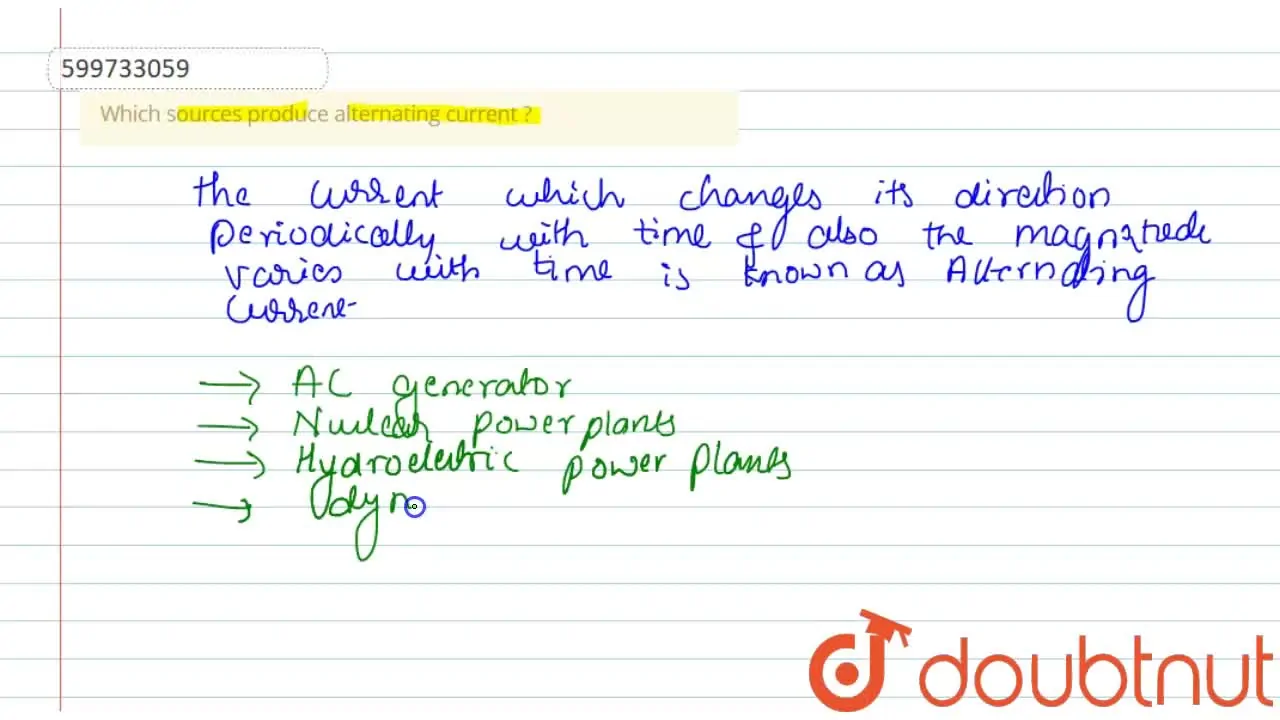 599733059
Which sources produce alternating current ?
the current which changes its direction
periodically with time & also the magnitude
varies with time is known as Alternating
Current
→ AC generator
→ Nuclear power plants
→ Hydroelectric power plants
→ dyn
doubtnut